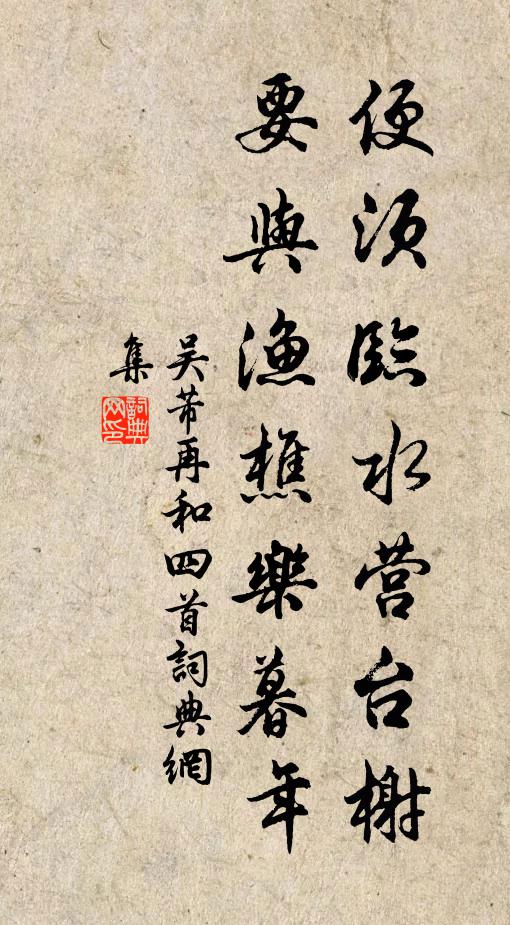 便须臨水营台榭
要與漁樵樂暮年
吴芾再和四首詞典網
集
詞典网印